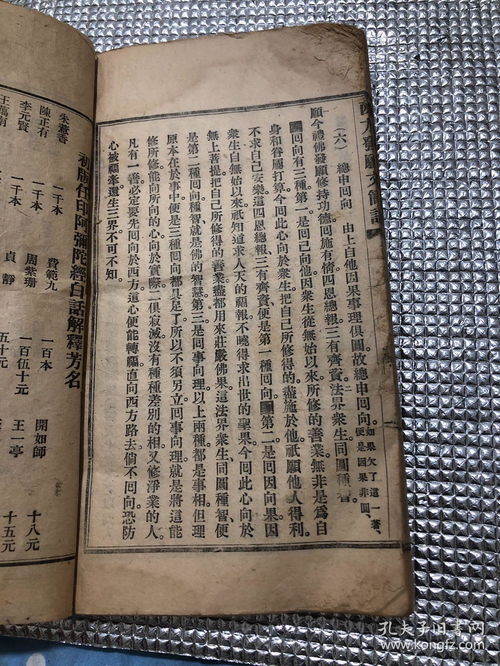 西方發願文簡註
(六) 總申回向 由上自他因果事理俱圓故總申回向。如果欠了這一著、便是因果非圓、
願今禮佛發願修持功德回施有情四恩總報三有齊資法界衆生同圓種智
回向有三種第一是回己向他因衆生從無始以來所修的善業無非是爲自
身和眷屬打算今回此心向於衆生把自己所修得的盡施於他祇願他人得利。
不求自己安樂這四恩總報三有齊資便是第一種回向 第二是回因向果因
衆生自無始以來祇知道求人天的福報不曉得求出世的聖果今回此心向於
無上菩提把自己所修得的善業盡都用來莊嚴佛果這法界衆生同圓種智便
是第二種回向種智就是佛的智慧。第三是回事向理以上兩種都是事相但理
原本在於事中便是三種回向都具足了所以不須另立回事向理就是將這能
修所修能向所向的心向於實際二俱寂滅沒有種種差別的相又修淨業的人。
凡有一善必定要先回向於西方這心便能轉福直向西方路去倘不回向恐防
心被福牽還生三界不可不知。
初版代印阿彌陀經白話解釋芳名
開如師 十八元
王一亭 十五元
費範九 一百本
周紫珊 一百伍十元
貞靜 五十元
朱薏香 一千本
陳正有 一千本
李元賢 一千本
孔夫子旧书网
www.kongfz.com